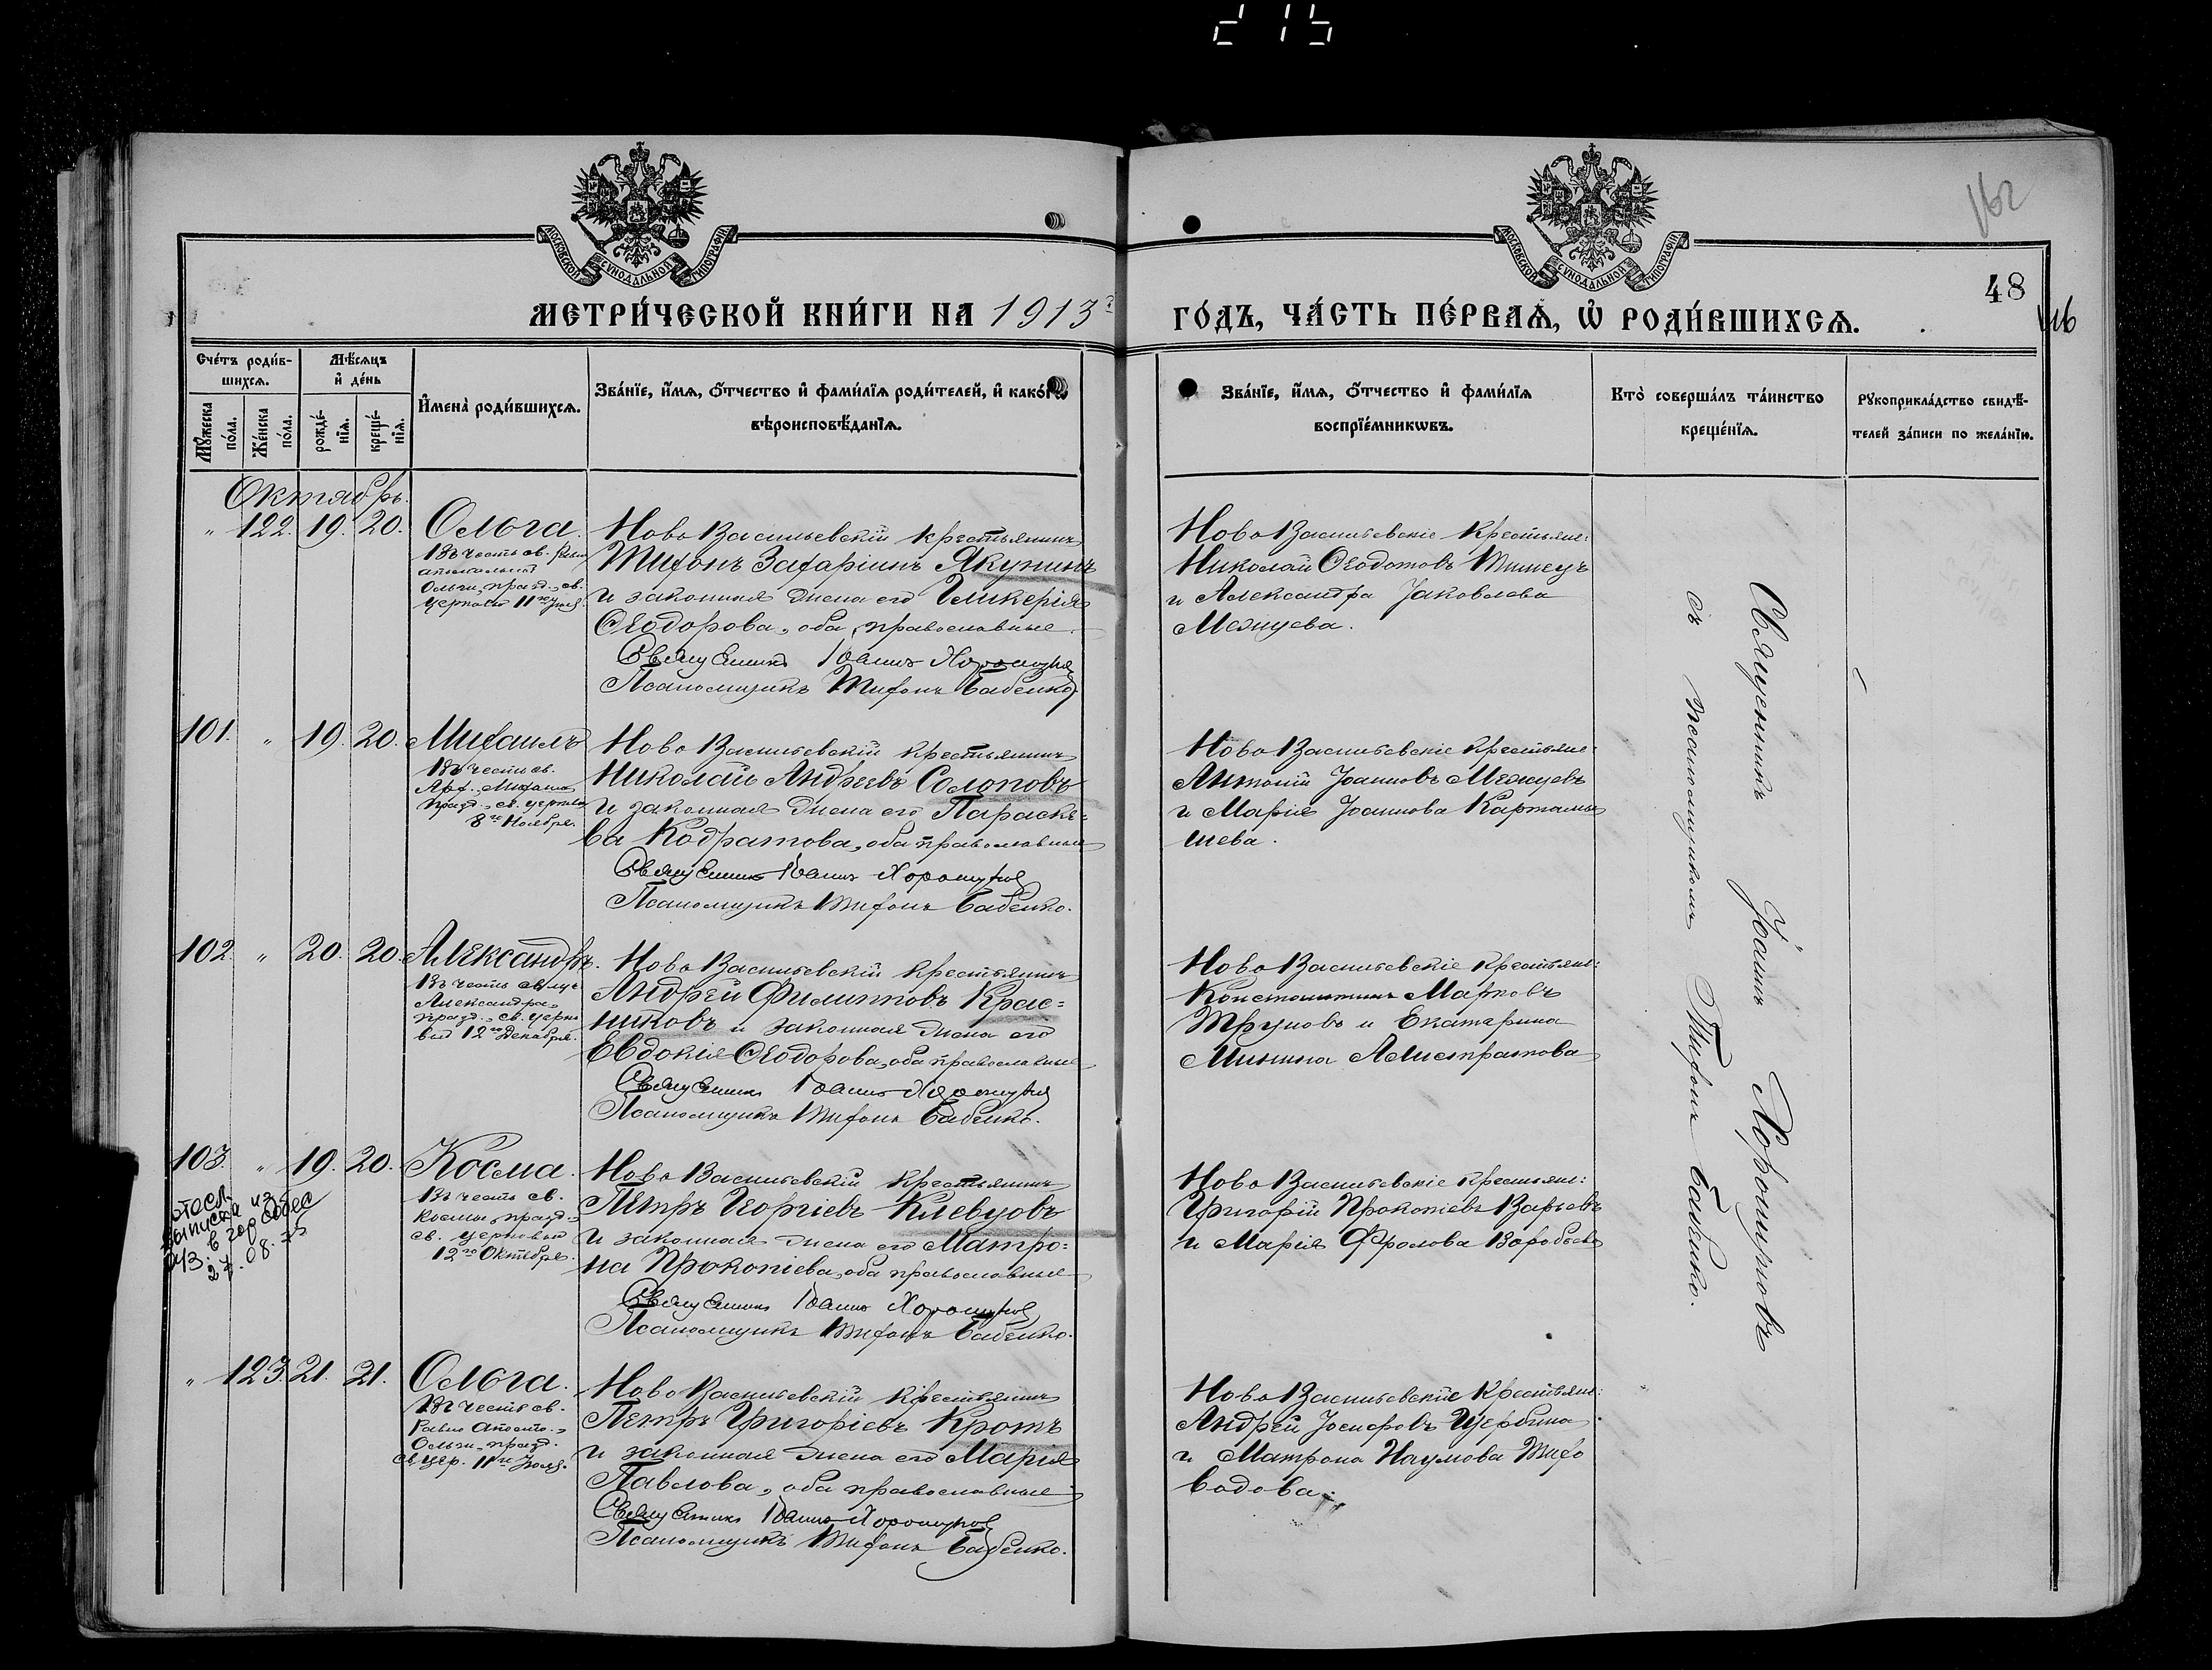 215
162
48
МОСКОВСКОЙ СѴНОДАЛЬНОЙ ТИПОГРАФІИ
МОСКОВСКОЙ СѴНОДАЛЬНОЙ ТИПОГРАФІИ
МЕТРИ́ЧЕСКОЙ КНИ́ГИ НА 1913
ГО́ДЪ, ЧА́СТЬ ПЕ́РВАѦ, Ѡ҆ РОДИ́ВШИХСѦ.
Счетъ роди́в-
шихсѧ.
Мѣсѧцъ
и҆ де́нь
Мꙋжеска по́ла.
Же́нска по́ла.
рожде́-нїѧ.
креще́-нїѧ.
И҆мена̀ роди́вшихсѧ.
Зва́нїе, и҆́мѧ, ѻ҆́тчество и҆ фами́лїѧ роди́телей, и҆ како́гѡ
вѣроисповѣ́данїѧ.
Зва́нїе, и҆́мѧ, ѻ҆́тчество и҆ фами́лїѧ
воспрїе́мникѡвъ.
Кто̀ соверша́лъ та́инство
креще́нїѧ.
Рꙋкоприкла́дство свидѣ́-
телей за́писи по жела́нїю.
Октябрь.
" 122. 19. 20. Ольга.
Въ честь св. Равно
апостольной
Ольги, празд. св.
церковію 11го Іюля.
Ново Васильевскій крестьянинъ
Тихонъ Захаріинъ Якунинъ
и законная жена его Гликерія
Ѳеодорова, оба православные.
Священникъ Іоаннъ Хорошуновъ
Псаломщикъ Тихонъ Бабенко.
Ново Васильевскіе крестьяне:
Николай Ѳеодотовъ
и Александра Іаковлева
Межуева.
101. " 19. 20. Михаилъ
Въ честь св.
Арх. Михаила
празд. св. церковію
8го Ноября.
Ново Васильевскій крестьянинъ
Николай Андреевъ Солоповъ
и законная жена его Параске-
ва Кодратова, оба православные
Священникъ Іоаннъ Хорошуновъ
Псаломщикъ Тихонъ Бабенко.
Ново Васильевскіе крестьяне:
Антоній Іоанновъ Межуевъ
и Марія Іоаннова Картамы
шева.
102. " 20. 20. Александръ.
Въ честь св. муч.
Александра,
празд. св. церко
вью 12го Декабря.
Ново Васильевскій крестьянинъ
Андрей Филипповъ Крас=
никовъ и законная жена его
Евдокія Ѳеодорова, оба православные
Священникъ Іоаннъ Хорошуновъ
Псаломщикъ Тихонъ Бабенко.
Ново Васильевскіе крестьяне:
Константинъ Марковъ
Труновъ и Екатерина
Минина Алистратова
103. " 19. 20. Косма.
Въ честь св.
Космы, празд.
св. церковью
12го Октября.
отосл.
выписка из
в гор
27.08.
Ново Васильевскій крестьянинъ
Петръ Георгіевъ Клевцовъ
и законная жена его Матро=
на Прокопіева, оба православные
Священникъ Іоаннъ Хорошуновъ
Псаломщикъ Тихонъ Бабенко.
Ново Васильевскіе крестьяне:
Григорій Прокопіевъ
и Марія Фролова Воробьева
" 123. 21. 21. Ольга.
Въ честь св.
Равно Апосто.,
Ольги, празд.
св. цер. 11го Іюля.
Ново Васильевскій крестьянинъ
Петръ Григоріевъ Кротъ
и законная жена его Марія
Павлова, оба православные.
Священникъ Іоаннъ Хорошуновъ
Псаломщикъ Тихонъ Бабенко.
Ново Васильевскіе крестьяне:
Андрей Іосифовъ Щербина
и Матрона Наумова Тихо
водова.
Священникъ Іоаннъ Хорошуновъ
съ псаломщикомъ Тихонъ Бабенко.